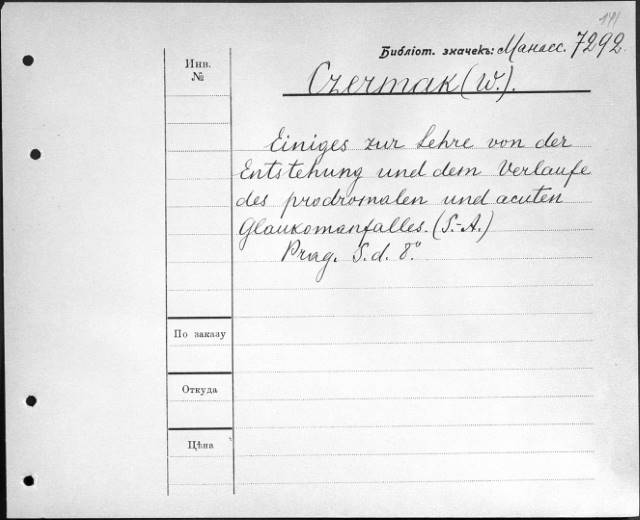 141
Библіот. значекъ: Манасс. 7292.
Инв.
№
Czermak (W.).
Einiges zur Lehre von der
Entstehung und dem Verlaufe
des prodromalen und acuten
Glaukomanfalles. (S.-A.)
Prag. S. d. 8.°
По заказу
Откуда
Цѣна